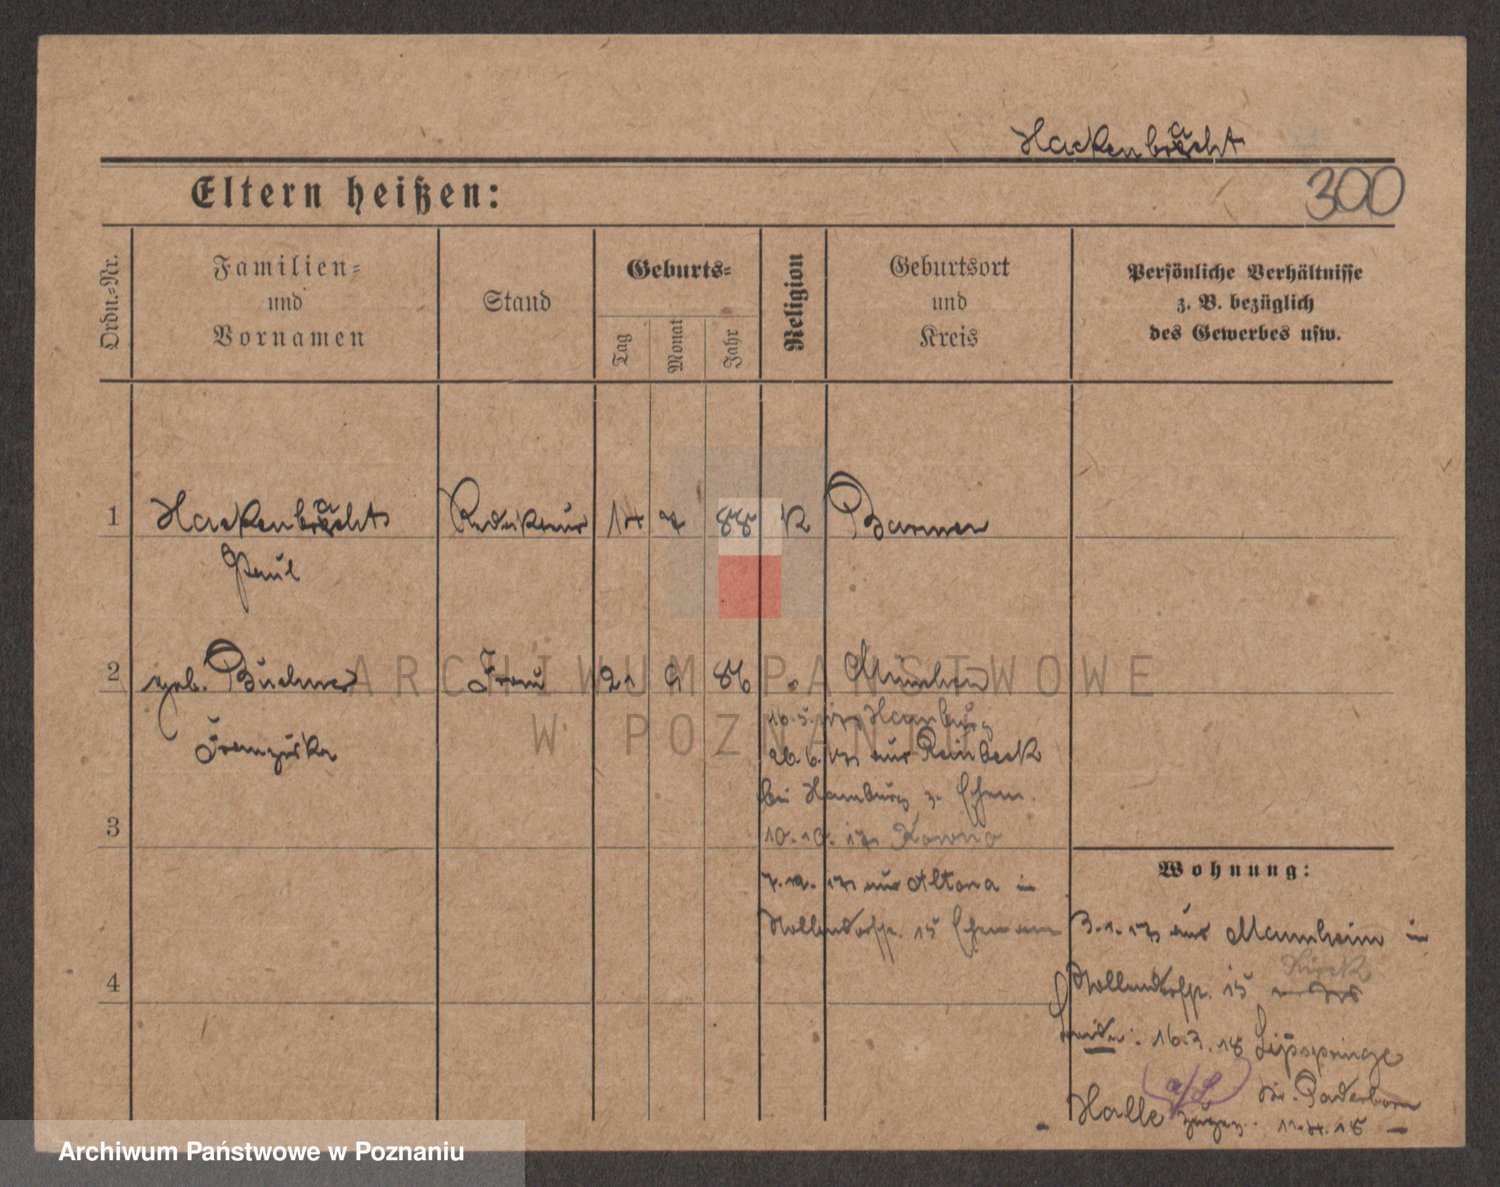 Hackenbracht
300
Eltern heißen:
Ordn.-Nr.
Familien-
und
Vornamen
Stand
Geburts-
Tag
Monat
Jahr
Religion
Geburtsort
und
Kreis
Persönliche Verhältnisse
z. B. bezüglich
des Gewerbes usw.
1 Hackenbracht Redakteur 14 7 88 K Barmen
Paul
2 geb. Buchner Frau 21 9 86 München
Franziska
16.5.17 Hamburg
26.6.17 aus Reinbeck
bei Hamburg z. Ehem.
3
10.10.17 Kowno
7.12.17 aus Altona in
15 Ehemann
4
Wohnung:
3.1.17 aus Mannheim in
15
16.3.18 Lippspringe
Kr. Paderborn
Halle a/S
11.4.18
ARCHIWUM PAŃSTWOWE
W POZNANIU
Archiwum Państwowe w Poznaniu